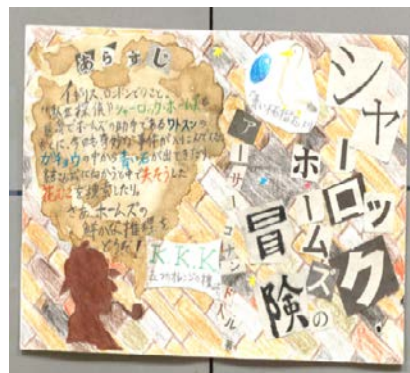 シャーロック・
ホームズの
冒険
アーサー・コナン・ドイル 著
あらすじ
イギリス、ロンドンでのこと。
シャーロック・ホームズと
ホームズの助手であるワトスンの
もとに、今日も奇妙な事件が
ガチョウの中から青い石が出てきたり、
失そうした
花むこを捜索したり。
さあ、ホームズの
鮮かな推理を
どうぞ!
K.K.K
五つのオレンジの種